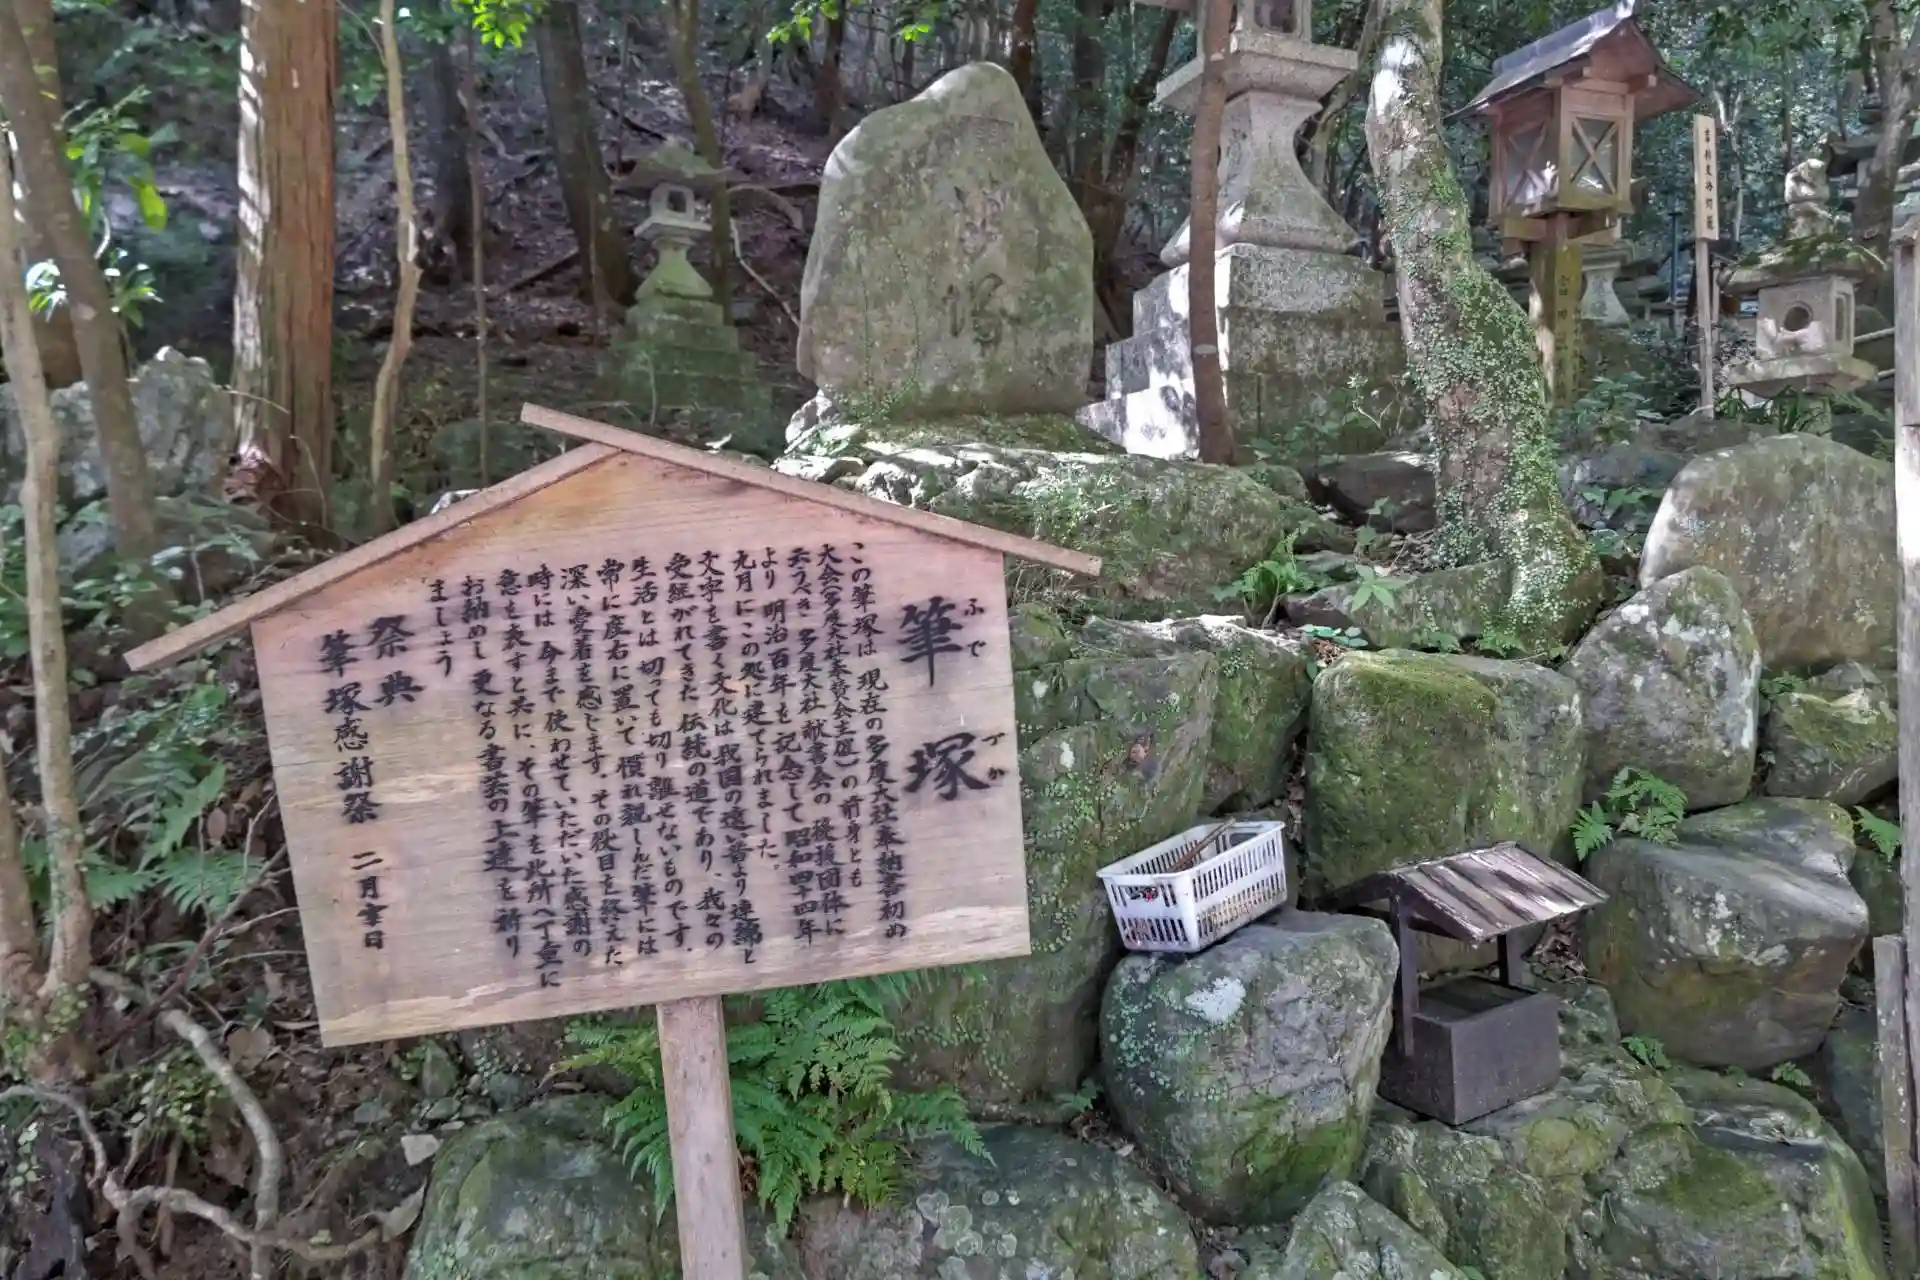 筆塚
ふでづか
この筆塚は 現在の多度大社奉納書初め
大会(多度大社奉賛会主催)の前身とも
云うべき 多度大社 献書会の後援団体に
より 明治百年を記念して 昭和四十四年
九月にこの処に建てられました。
文字を書く文化は我国の遠い昔より連綿と
受継がれてきた 伝統の道であり、我々の
生活とは 切っても切り離せないものです。
常に座右に置いて 慣れ親しんだ筆には
深い愛着を感じます。その役目を終えた
時には 今まで使わせていただいた感謝の
意を表すと共に、その筆を此所へ丁重に
お納めし 更なる書芸の上達を祈り
ましょう
祭典
筆塚感謝祭 二月幸日
筆塚